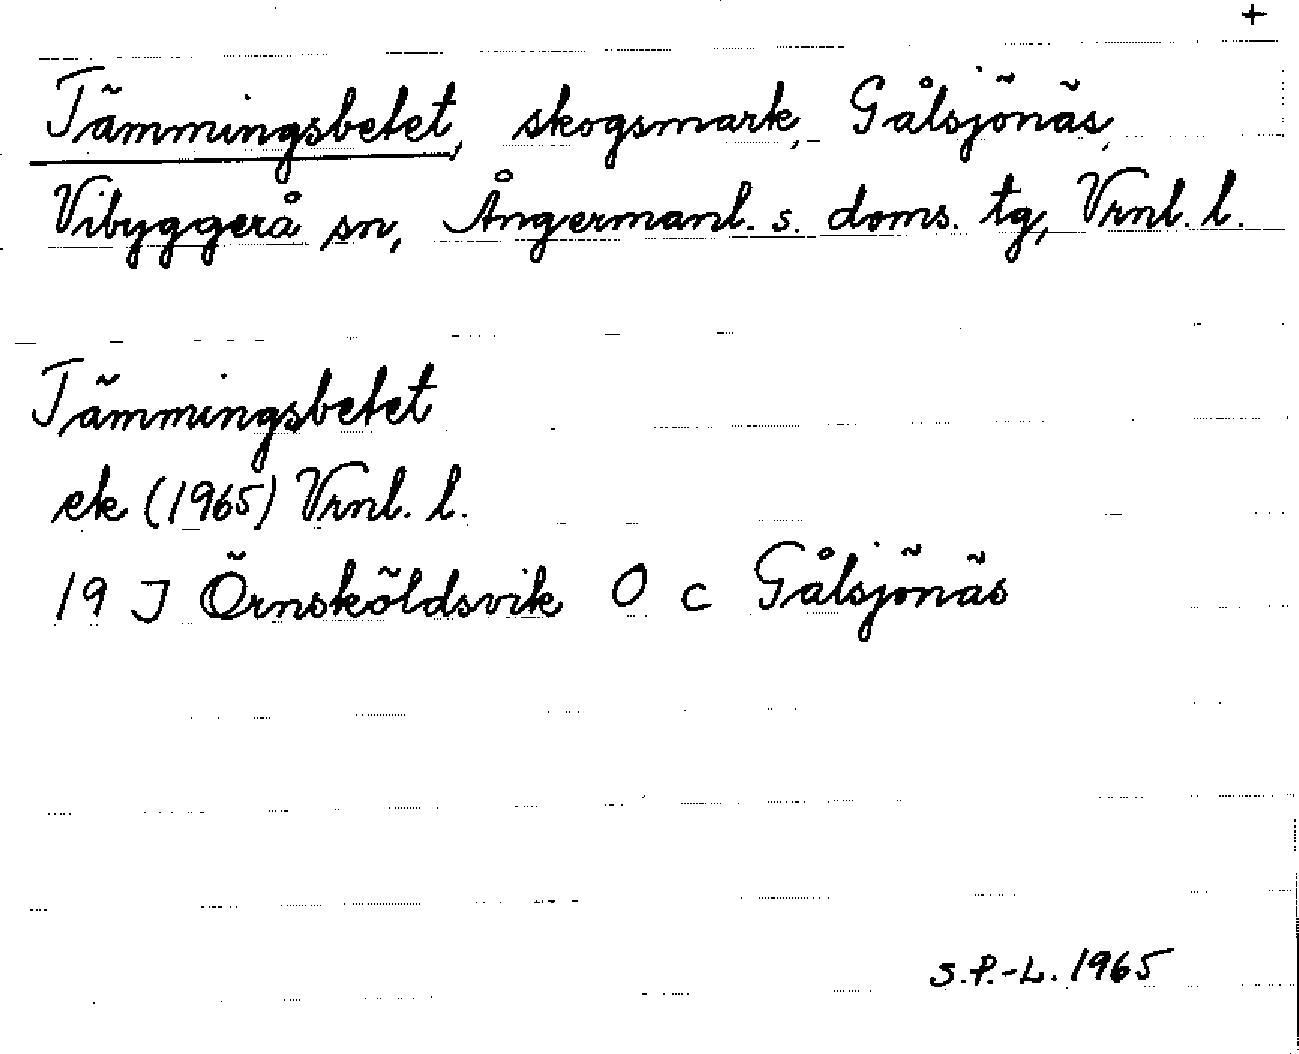 +
Tämmingsbetet, skogsmark, Gålsjönäs,
Vibyggerå sn, Ångermanl. s. doms. tg, Vrnl. l.
Tämmingsbetet
ek (1965) Vrnl. l.
19 J Örnsköldsvik O c Gålsjönäs
S.P.-L. 1965